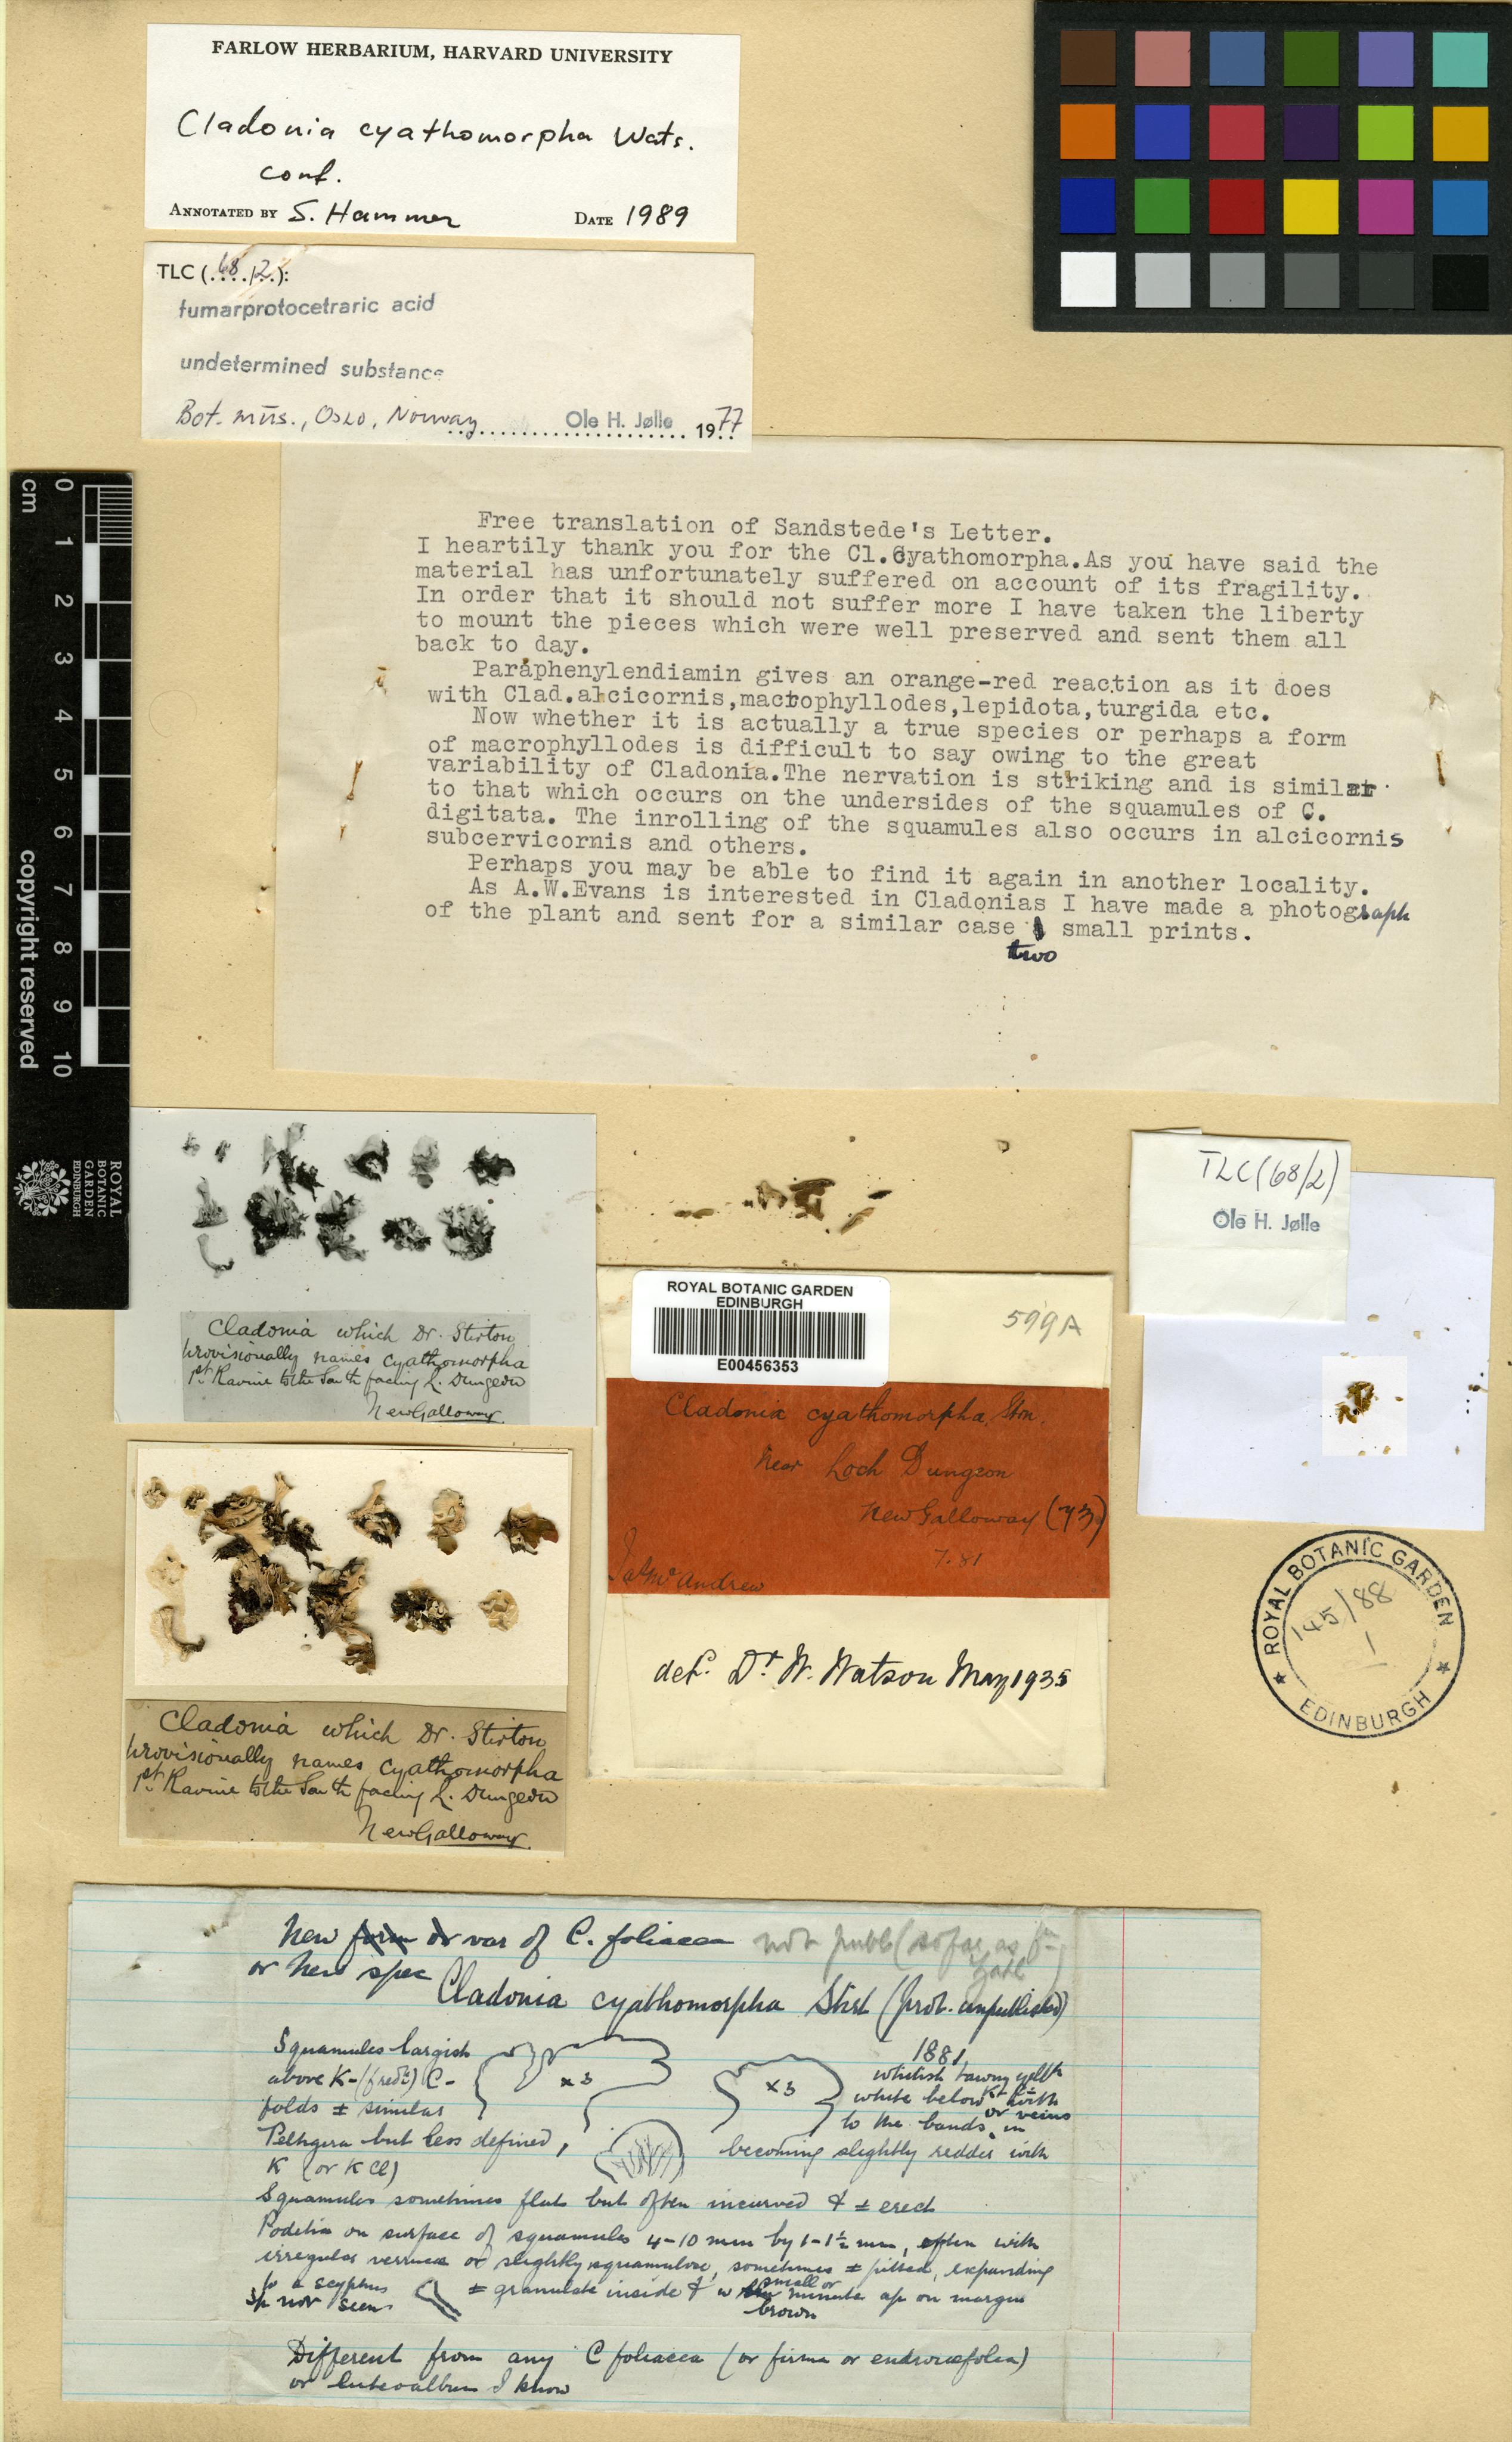 FARLOW HERBARIUM, HARVARD UNIVERSITY
Cladonia cyathomorpha Wats.
conf.
ANNOTATED BY S. Hammer DATE 1989
TLC (68/2):
fumarprotocetraric acid
undetermined substance
Bot. mus., Oslo, Norway Ole H. Jølle 1977
Free translation of Sandstede's Letter.
I heartily thank you for the Cl.Cyathomorpha.As you have said the
material has unfortunately suffered on account of its fragility.
In order that it should not suffer more I have taken the liberty
to mount the pieces which were well preserved and sent them all
back to day.
Paraphenylendiamin gives an orange-red reaction as it does
with Clad.alcicornis,macrophyllodes,lepidota,turgida etc.
Now whether it is actually a true species or perhaps a form
of macrophyllodes is difficult to say owing to the great
variability of Cladonia.The nervation is striking and is similar
to that which occurs on the undersides of the squamules of C.
digitata. The inrolling of the squamules also occurs in alcicornis
subcervicornis and others.
Perhaps you may be able to find it again in another locality.
As A.W.Evans is interested in Cladonias I have made a photograph
of the plant and sent for a similar case small prints.
two
cm
0 1 2 3 4 5 6 7 8 9 10
copyright reserved
ROYAL BOTANIC GARDEN EDINBURGH
Cladonia which Dr. Stirton
provisionally names cyathomorpha
1st Ravine to the South facing L. Dungeon
New Galloway.
TLC (68/2)
Ole H. Jølle
ROYAL BOTANIC GARDEN
EDINBURGH
E00456353
599A
Cladonia cyathomorpha, Strn.
Near Loch Dungeon
New Galloway (73)
7.81
Jas McAndrew
det. Dr W. Watson May 1935
ROYAL BOTANIC GARDEN
145/88
1
EDINBURGH
Cladonia which Dr. Stirton
provisionally names cyathomorpha
1st Ravine to the South facing L. Dungeon
New Galloway.
New form or var of C. foliacea not publ (so far as
or new spec
Cladonia cyathomorpha Stirt (prob. unpublished)
1881
Squamules largish
above K- C-
folds ± similar
x3
x3
whitish tawny
white below K±
to the bands or veins in
Peltigera but less defined, becoming slightly redder with
K (or K Cl)
Squamules sometimes flat but often incurved & ± erect
Podetia on surface of squamules 4-10 mm by 1-1½ mm, often with
irregular verrucae or slightly squamulose, sometimes ± pitted, expanding
to a scyphus ± granulate inside & w small or minute ap on margin
sp not seen brown
Different from any C foliacea (or firma or endiviaefolia)
or luteoalbum I know